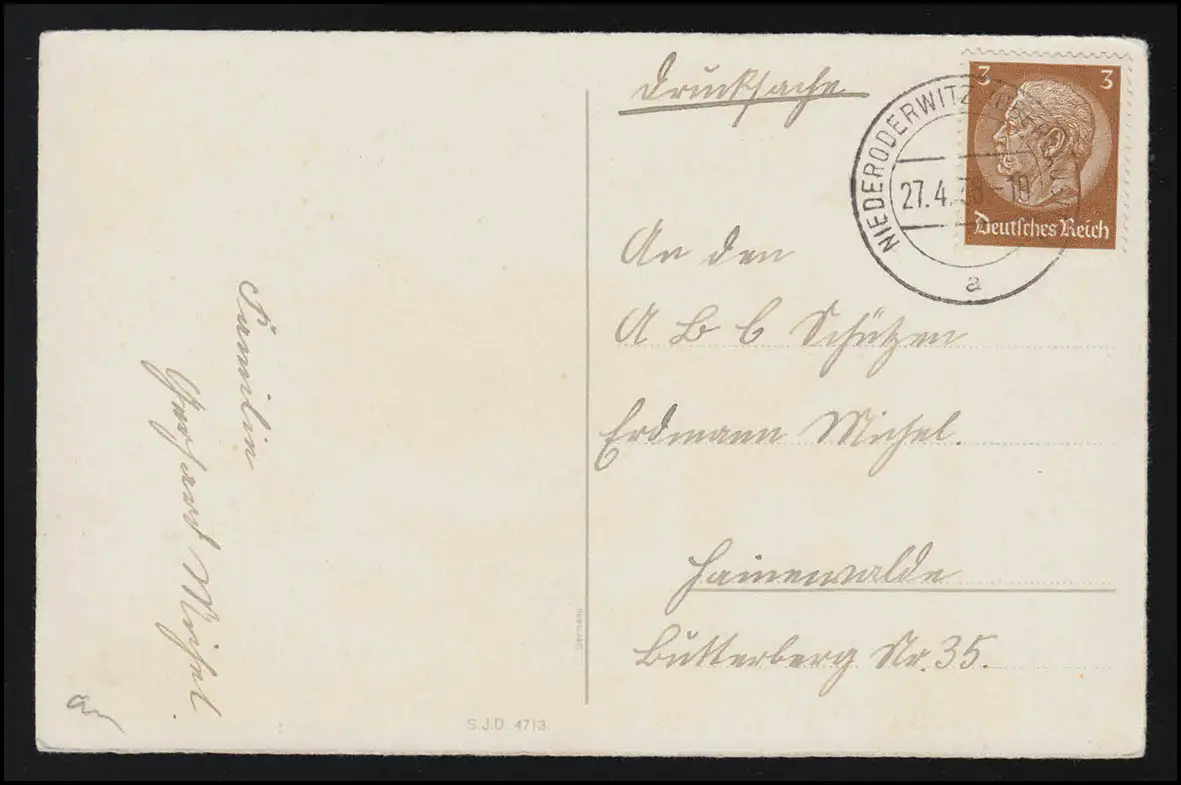 Familie
Gerhard Michel.
Drucksache
3 3
Deutsches Reich
NIEDERODERWITZ
27.4.38.-10
a
An den
A B C Schützen
Erdmann Michel.
Hainewalde
Butterberg Nr. 35.
Germany
S.J.D. 4713.